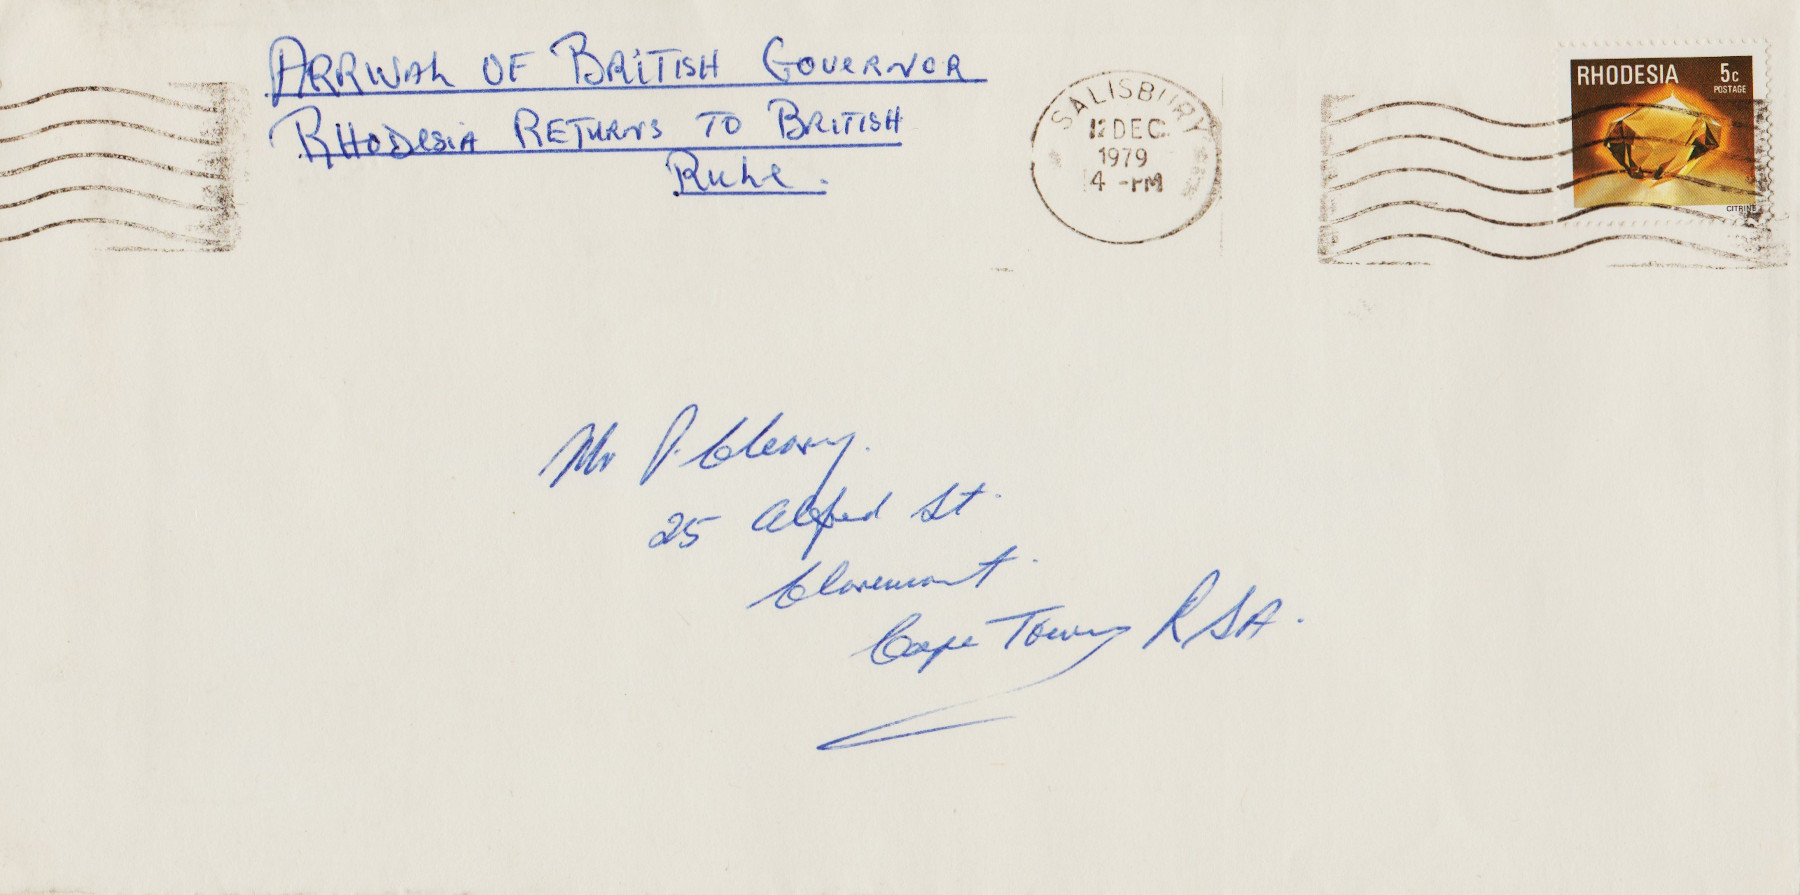 ARRIVAL OF BRITISH GOVERNOR
RHODESIA RETURNS TO BRITISH
RULE.
SALISBURY
12 DEC
1979
4 -PM
RHODESIA 5c
POSTAGE
CITRINE
Mr P. Cleary.
25 Alfred St.
Claremont.
Cape Town RSA.